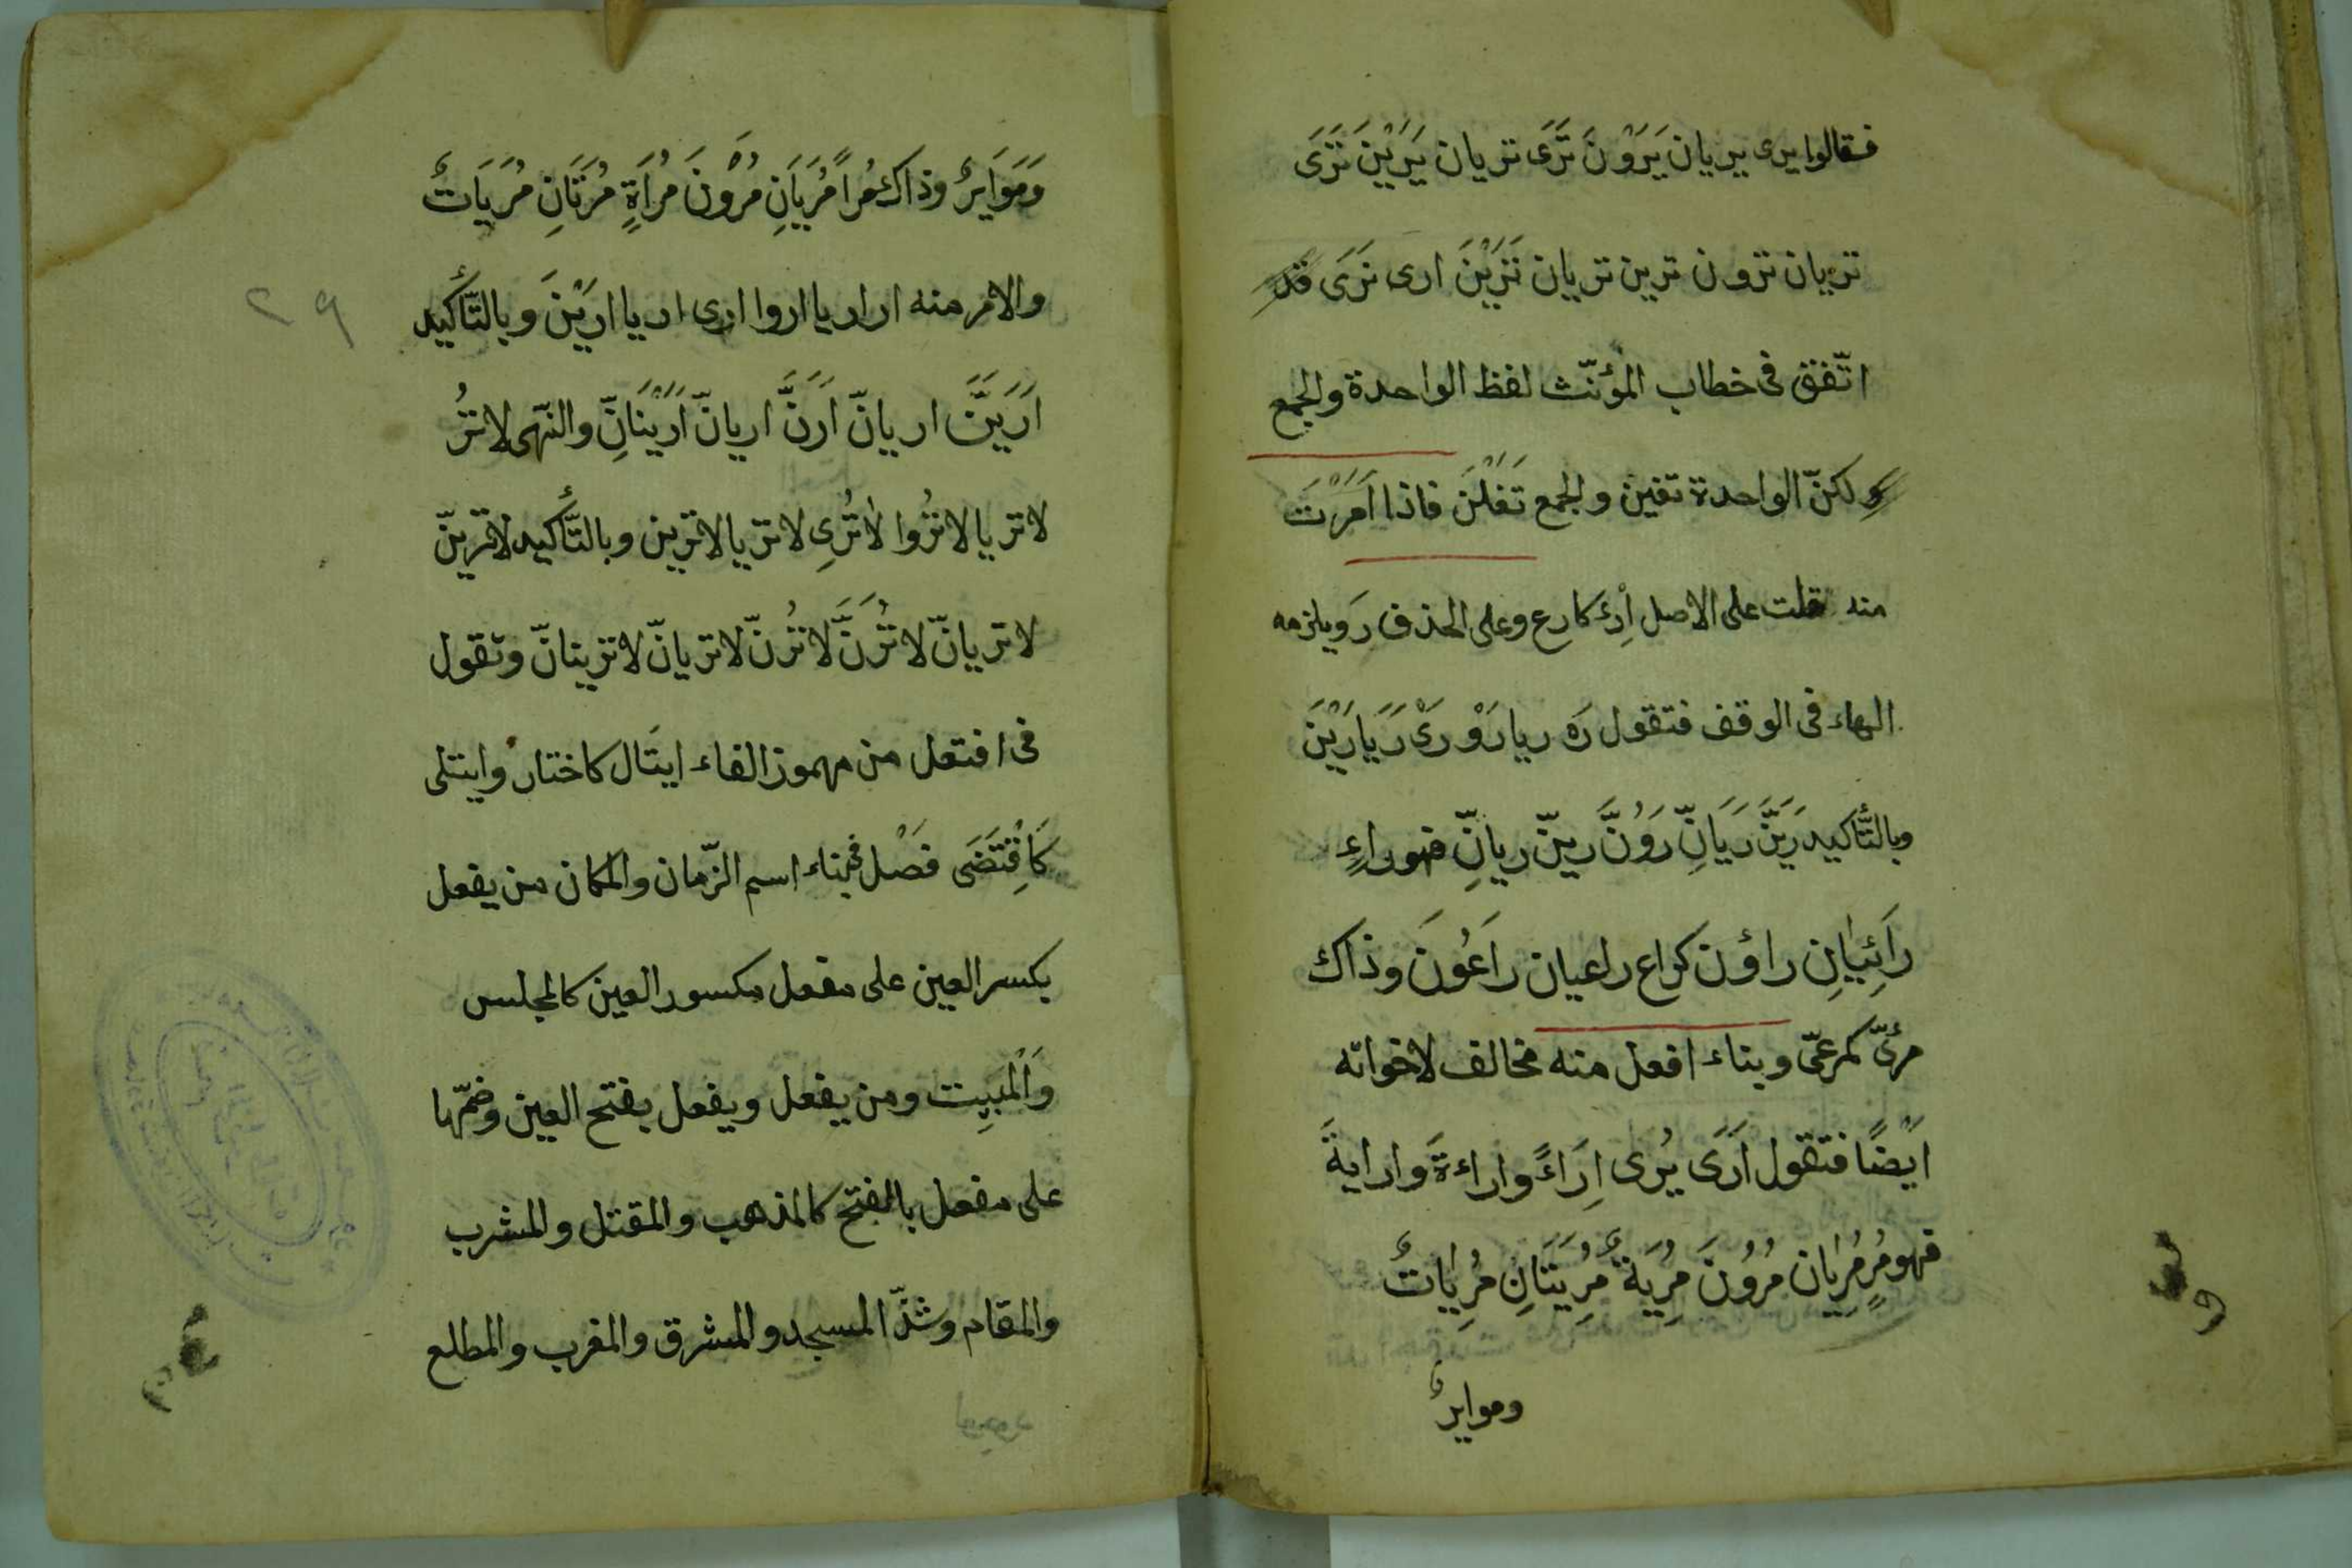 فقالوا يرى يريان يَرَوْنَ تَرَى تريان يَرَيْنَ تَرَى
تريان ترون ترين تريان تَرَيْنَ ارى نَرَى قد
اتّفق فى خطاب المؤنّث لفظ الواحدة والجمع
ولكنّ الواحدة تفين والجمع تَفَلْنَ فاذا اَمَرْتَ
منه قلت على الاصل اِرْءَ كارع وعلى الحذف رَ ويلزمه
الهاء فى الوقف فتقول رَه ريا رَوْ رَىْ رَيَا رَيْنَ
وبالتّأكيد رَيَنَّ رَيَانِّ رَوُنَّ رينّ ريانِّ فهو راءٍ
رَائِيَانِ راؤن كراع راعيان رَاعُونَ وذاك
مرئىّ كمرعىّ وبناء افعل منه مخالف لاخواته
اَيْضًا فتقول اَرَى يُرى اِرَاءً واراءةً وارايةً
فهو مُرٍ مُرِيان مُرُونَ مُرِيَةٌ مُرِيَتَانِ مُرِيَاتٌ
ومواير
وَمَوَايِرُ وذاك مُرًا مُرَيَانِ مُرَوْنَ مُرَاةٍ مُرَتَانِ مُرَيَاتٌ
والامر منه ار اريا اروا ارى اريا ارَيْنَ وبالتّأكيد
اَرَيَنَّ اريانّ اَرَنَّ اريانّ اَرَيْنَانِّ والنّهى لا تُرُ
لا تريا لا تُرُوا لا تُرِى لا تريا لا ترين وبالتّأكيد لا ترينّ
لا تريانّ لا تُرُنَّ لا تُرنّ لا تريانّ لا ترينانّ وتقول
فى افتعل من مهموز الفاء ايتَال كاختار وايتلى
كَاقْتَضَى فَصْل فى بناء اسم الزّمان والمكان من يفعل
بكسر العين على مفعل مكسور العين كالمجلس
وَالْمَبِيت ومن يفعل ويفعل بفتح العين وضمّها
على مفعل بالفتح كالمذهب والمقتل والمشرب
والمقام وشذّ المسجد والمشرق والمغرب والمطلع
٢٩